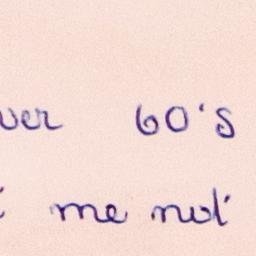 ver 60's
me not